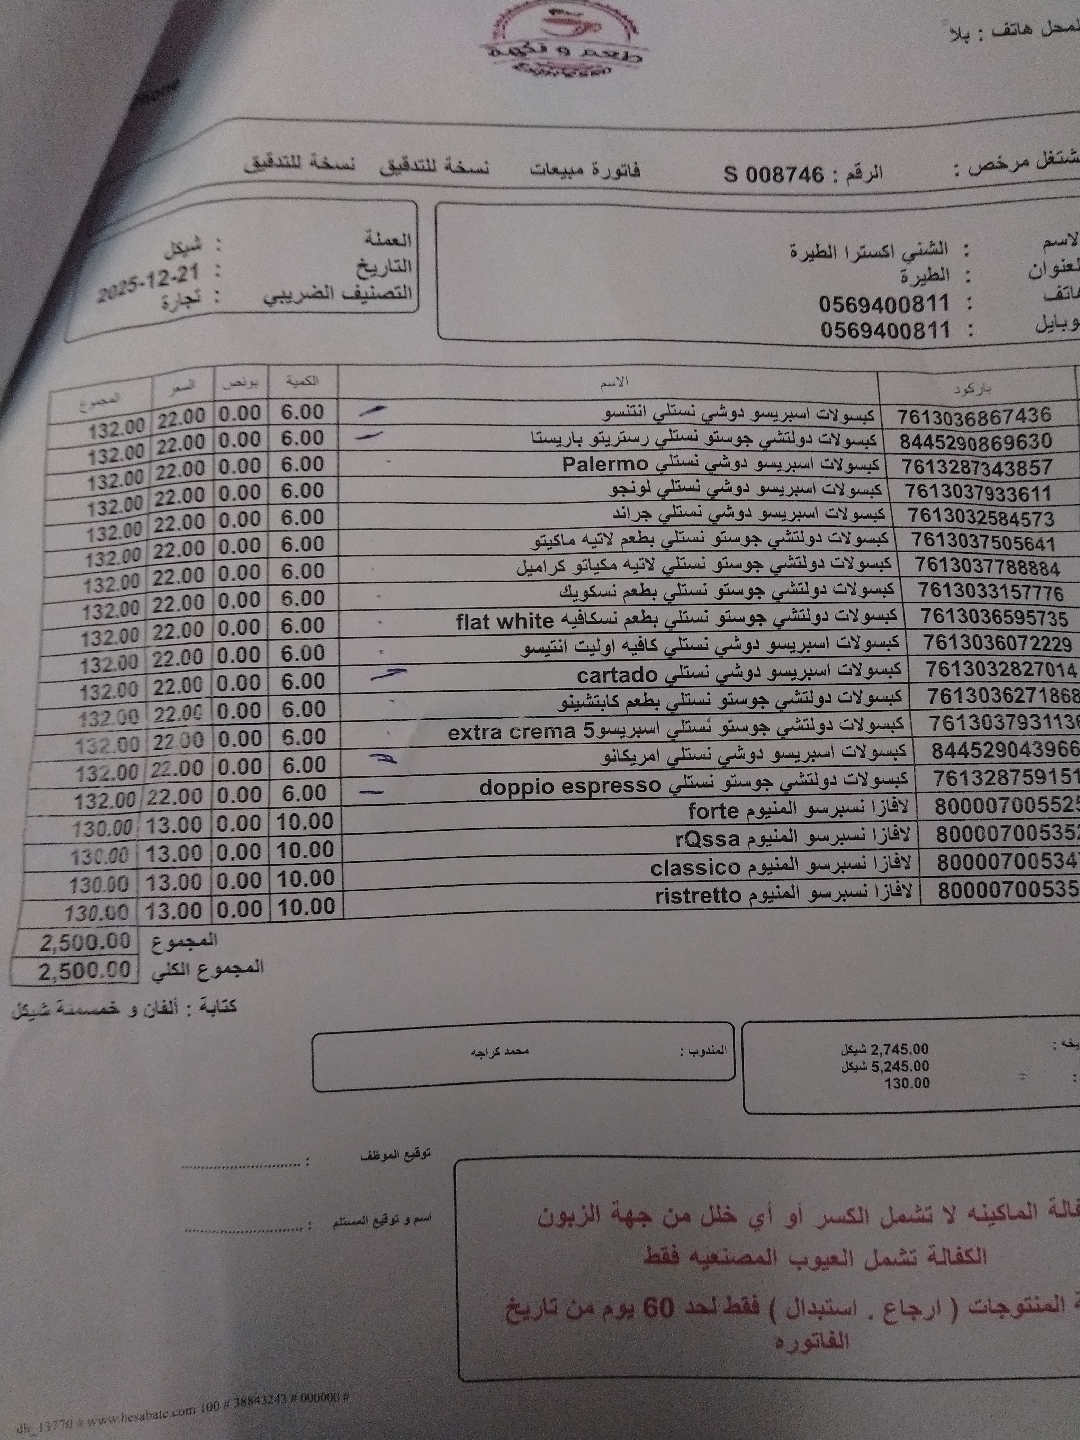 طعم و نكهة
Espresso
المحل هاتف : بلا
شتغل مرخص : الرقم : S 008746 فاتورة مبيعات نسخة للتدقيق نسخة للتدقيق
لاسم : الشني اكسترا الطيرة
لعنوان : الطيرة
هاتف : 0569400811
وبايل : 0569400811
العملة : شيكل
التاريخ : 2025-12-21
التصنيف الضريبي : تجارة
باركود الاسم الكمية بونص السعر المجموع
7613036867436 كبسولات اسبريسو دوشي نستلي انتنسو 6.00 0.00 22.00 132.00
8445290869630 كبسولات دولتشي جوستو نستلي رستريتو باريستا 6.00 0.00 22.00 132.00
7613287343857 كبسولات اسبريسو دوشي نستلي Palermo 6.00 0.00 22.00 132.00
7613037933611 كبسولات اسبريسو دوشي نستلي لونجو 6.00 0.00 22.00 132.00
7613032584573 كبسولات اسبريسو دوشي نستلي جراند 6.00 0.00 22.00 132.00
7613037505641 كبسولات دولتشي جوستو نستلي بطعم لاتيه ماكيتو 6.00 0.00 22.00 132.00
7613037788884 كبسولات دولتشي جوستو نستلي لاتيه مكياتو كراميل 6.00 0.00 22.00 132.00
7613033157776 كبسولات دولتشي جوستو نستلي بطعم نسكويك 6.00 0.00 22.00 132.00
7613036595735 كبسولات دولتشي جوستو نستلي بطعم نسكافيه flat white 6.00 0.00 22.00 132.00
7613036072229 كبسولات اسبريسو دوشي نستلي كافيه اوليت انتيسو 6.00 0.00 22.00 132.00
7613032827014 كبسولات اسبريسو دوشي نستلي cartado 6.00 0.00 22.00 132.00
7613036271868 كبسولات دولتشي جوستو نستلي بطعم كابتشينو 6.00 0.00 22.00 132.00
761303793113 كبسولات دولتشي جوستو نستلي اسبريسو5 extra crema 6.00 0.00 22.00 132.00
844529043966 كبسولات اسبريسو دوشي نستلي امريكانو 6.00 0.00 22.00 132.00
761328759151 كبسولات دولتشي جوستو نستلي doppio espresso 6.00 0.00 22.00 132.00
800007005525 لافازا نسبرسو المنيوم forte 10.00 0.00 13.00 130.00
800007005352 لافازا نسبرسو المنيوم rQssa 10.00 0.00 13.00 130.00
800007005347 لافازا نسبرسو المنيوم classico 10.00 0.00 13.00 130.00
80000700535 لافازا نسبرسو المنيوم ristretto 10.00 0.00 13.00 130.00
المجموع 2,500.00
المجموع الكلي 2,500.00
كتابة : ألفان و خمسمئة شيكل
يخه : 2,745.00 شيكل
5,245.00 شيكل
: 130.00
المندوب : محمد كراجه
توقيع الموظف : ............................
اسم و توقيع المستلم : ............................
فالة الماكينه لا تشمل الكسر او أي خلل من جهة الزبون
الكفالة تشمل العيوب المصنعيه فقط
ة المنتوجات ( ارجاع . استبدال ) فقط لحد 60 يوم من تاريخ
الفاتوره
dh_13770 # www.hesabate.com 100 # 38843243 # 000000 #